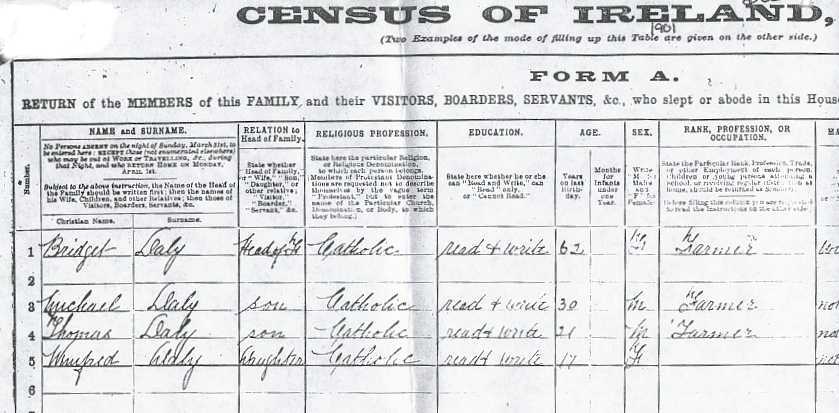 CENSUS OF IRELAND,
901
(Two Examples of the mode of filling up this Table are given on the other side.)
FORM A.
RETURN of the MEMBERS of this FAMILY, and their VISITORS, BOARDERS, SERVANTS, &c., who slept or abode in this Hous
Number.
NAME and SURNAME.
No Persons ABSENT on the night of Sunday, March 31st, to
be entered here: EXCEPT those (not enumerated elsewhere)
who may be out at WORK or TRAVELLING, &c., during
that Night, and who RETURN HOME ON MONDAY,
APRIL 1ST.
Subject to the above instruction, the Name of the Head of
the Family should be written first; then the names of
his Wife, Children, and other Relatives; then those of
Visitors, Boarders, Servants, &c.
Christian Name. Surname.
RELATION to
Head of Family.
State whether
"Head of Family,"
or "Wife," "Son,"
"Daughter," or
other Relative;
"Visitor,"
"Boarder,"
"Servant," &c.
RELIGIOUS PROFESSION.
State here the particular Religion,
or Religious Denomination,
to which each person belongs.
Members of Protestant Denomina-
tions are requested not to describe
themselves by the vague term
"Protestant," but to enter the
name of the Particular Church,
Denomination, or Body, to which
they belong.]
EDUCATION.
State here whether he or she
can "Read and Write," can
"Read" only,
or "Cannot Read."
AGE.
Years
on last
Birth-
day.
Months
for
Infants
under
one
Year.
SEX.
Write
"M" for
Males
and
"F" for
Females.
RANK, PROFESSION, OR
OCCUPATION.
State the Particular Rank, Profession, Trade,
or other Employment of each person.
1 Bridget Daly Head of F Catholic read & write 62 F Farmer
2
3 Michael Daly son Catholic read & write 30 M Farmer not
4 Thomas Daly son Catholic read & write 21 M Farmer not
5 Winifred Daly Daughter Catholic read & write 17 F not
6